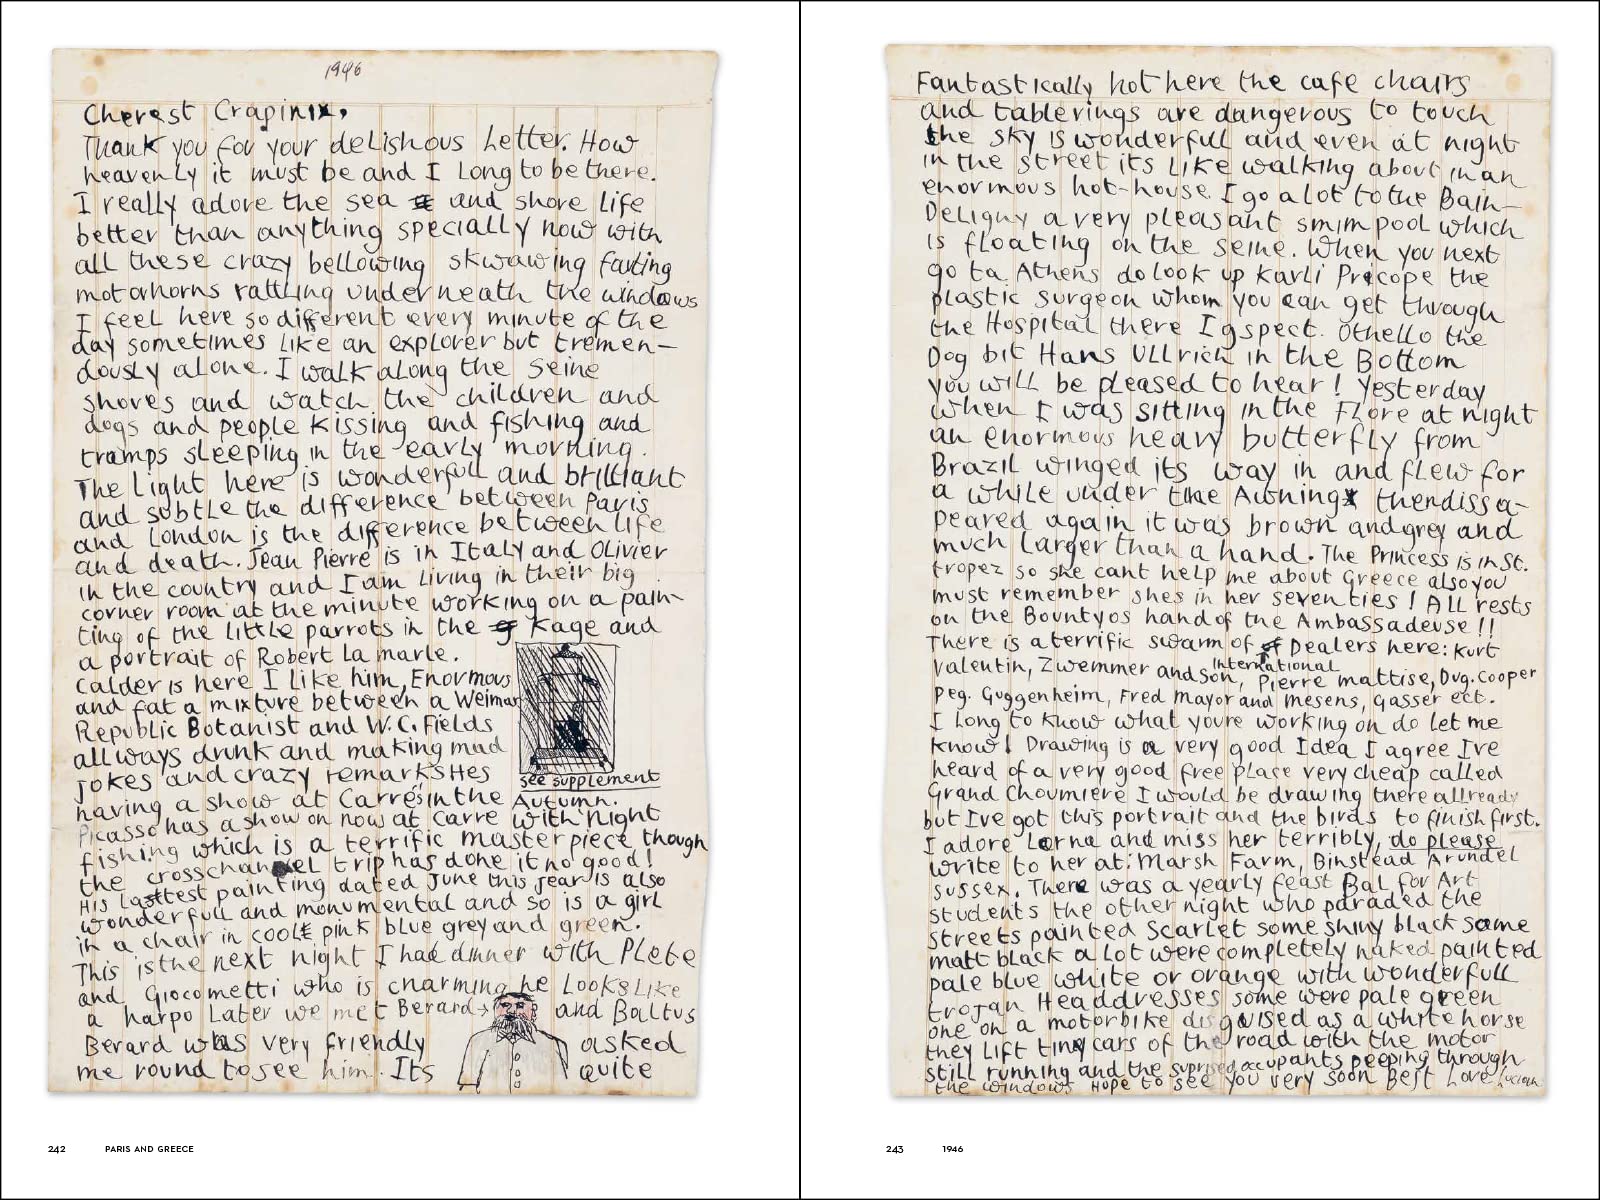 1946
Cherest Crapinix,
Thank you for your delishous Letter. How
heavenly it must be and I Long to be there.
I really adore the sea and shore life
better than anything specially now with
all these crazy bellowing skwawing farting
motorhorns rattling underneath the windows
I feel here so different every minute of the
day sometimes like an explorer but tremen-
dously alone. I walk along the Seine
shores and watch the children and
dogs and people kissing and fishing and
tramps sleeping in the early morning.
The Light here is wonderfull and brilliant
and subtle the difference between Paris
and London is the difference between life
and death. Jean Pierre is in Italy and Olivier
in the country and I am Living in their big
corner room at the minute working on a pain-
ting of the little parrots in the Kage and
a portrait of Robert La marle.
Calder is here I Like him, Enormous
and fat a mixture between a Weimar
Republic Botanist and W.C. Fields
allways drunk and making mad
jokes and crazy remarks Hes
see supplement
having a show at Carrés in the Autumn.
Picasso has a show on now at Carre with "Night
fishing" which is a terrific masterpiece though
the crosschannel trip has done it no good!
His lasttest painting dated June this year is also
wonderfull and monumental and so is a girl
in a chair in coole pink blue grey and green.
This is the next night I had dinner with Plete
and Giocometti who is charming he Looks Like
a harpo Later we met Berard → and Baltus
Berard was very friendly asked
me round to see him. Its quite
242 PARIS AND GREECE
Fantastically hot here the cafe chairs
and tablerings are dangerous to touch
the sky is wonderful and even at night
in the street its Like walking about in an
enormous hot-house. I go a lot to the Bain-
Deligny a very pleasant smim pool which
is floating on the seine. When you next
go to Athens do look up Karli Procope the
plastic surgeon whom you can get through
the Hospital there I gspect. Othello the
Dog bit Hans Ullrich in the Bottom
you will be pleased to hear! Yesterday
when I was sitting in the Flore at night
an enormous heavy butterfly from
Brazil winged its way in and flew for
a while under the Awning then dissa-
peared again it was brown and grey and
much Larger than a hand. The Princess is in St.
tropez so she cant help me about Greece also you
must remember shes in her seventies! All rests
on the Bountyos hand of the Ambassadeuse!!
There is a terrific swarm of Dealers here: Kurt
Valentin, Zwemmer and Son, International Pierre mattise, Dug. Cooper
Peg. Guggenheim, Fred Mayor and Mesens, Gasser ect.
I Long to know what youre working on do let me
know! Drawing is a very good Idea I agree I've
heard of a very good free place very cheap called
Grand Choumiere I would be drawing there allready
but I've got this portrait and the birds to finish first.
I adore Lorna and miss her terribly, do please
write to her at: Marsh Farm, Binstead Arundel
Sussex. There was a yearly feast Bal for Art
students the other night who paraded the
streets painted Scarlet some shiny black some
matt black a lot were completely naked painted
pale blue white or orange with wonderfull
trojan Headdresses some were pale green
one on a motorbike disguised as a white horse
they Lift tiny cars of the road with the motor
still running and the suprised occupants peeping through
the windows Hope to see you very soon Best Love Lucian
243 1946